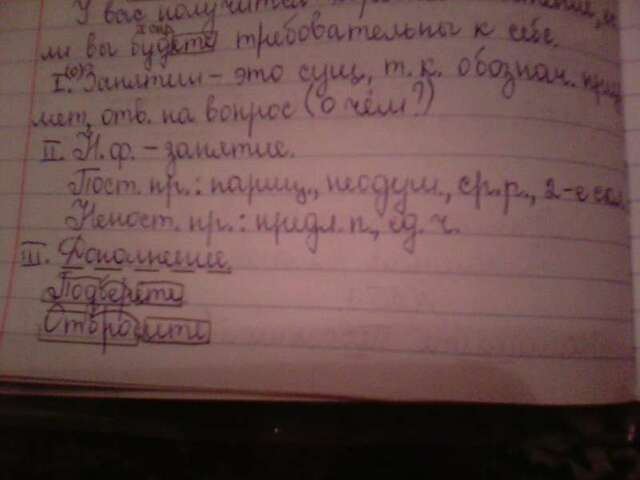 У вас получится
ли вы будете требовательны к себе.
I. (о) Занятии - это сущ., т. к. обознач. пред
мет, отв. на вопрос (о чём?)
II. Н. ф. - занятие.
Пост. пр.: нариц., неодуш., ср. р., 2-е скл.
Непост. пр.: предл. п., ед. ч.
III. Дополнение.
Подберите
Отбросите